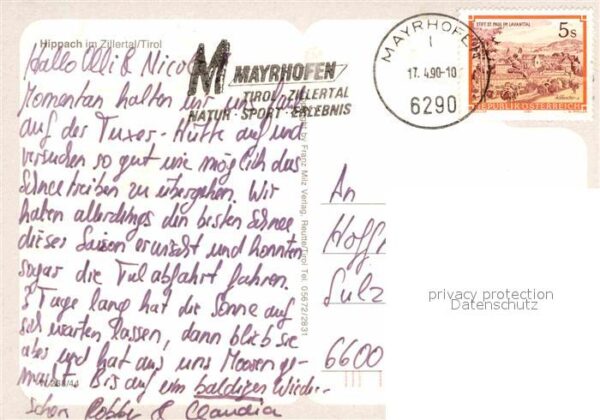 Hippach im Zillertal/Tirol
Hallo Olli & Nicol
Momentan halten wir uns
auf der Tuxer-Hütte auf und
versuchen so gut wie möglich das
Schneetreiben zu übergehen. Wir
haben allerdings den besten Schnee
dieser Saison erwischt und konnten
sogar die Talabfahrt fahren.
3 Tage lang hat die Sonne auf
sich warten lassen, dann blieb sie
aber und hat aus uns ge-
macht. Bis auf ein baldiges Wieder-
sehen Robby & Claudia
M MAYRHOFEN
TIROL · ZILLERTAL
NATUR · SPORT · ERLEBNIS
MAYRHOFEN
1
17. 4.90-10
6290
STIFT ST. PAUL IM LAVANTTAL
5s
REPUBLIK ÖSTERREICH
by Franz Milz Verlag, Reutte/Tirol Tel. 05672/2831
An
Hoff
Sulz
6600
privacy protection
Datenschutz